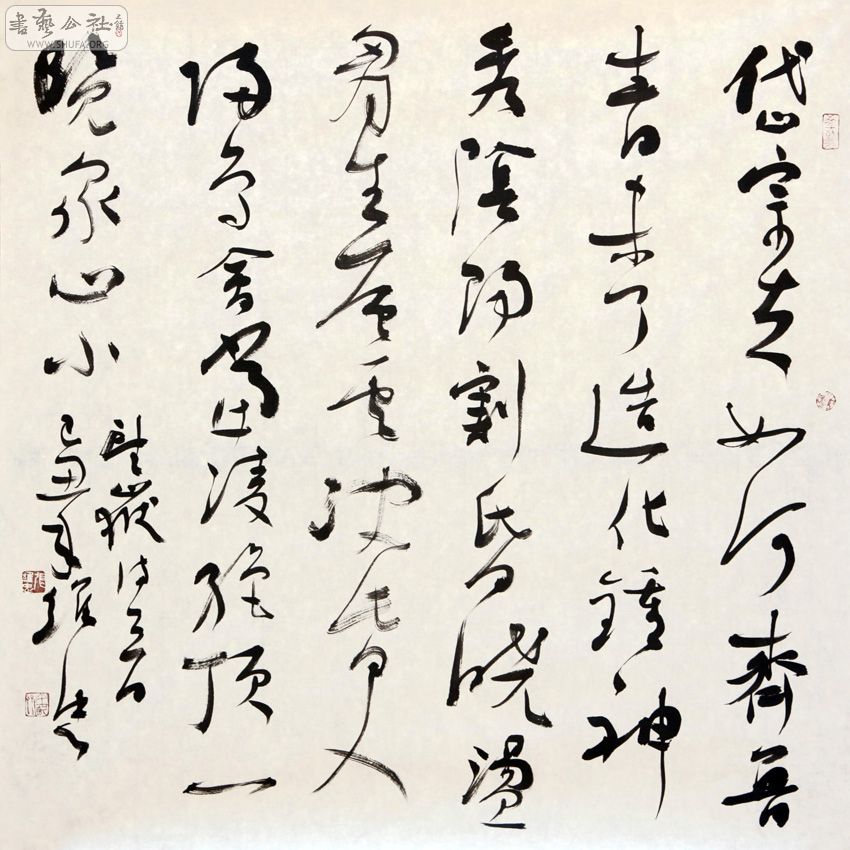 書藝公社
WWW.SHUFA.ORG
岱宗夫如何齊魯
青未了造化鍾神
秀陰陽割昏晓盪
胸生層雲決眥入
歸鳥會當凌絕頂一
覽眾山小
望嶽詩一首
己丑年